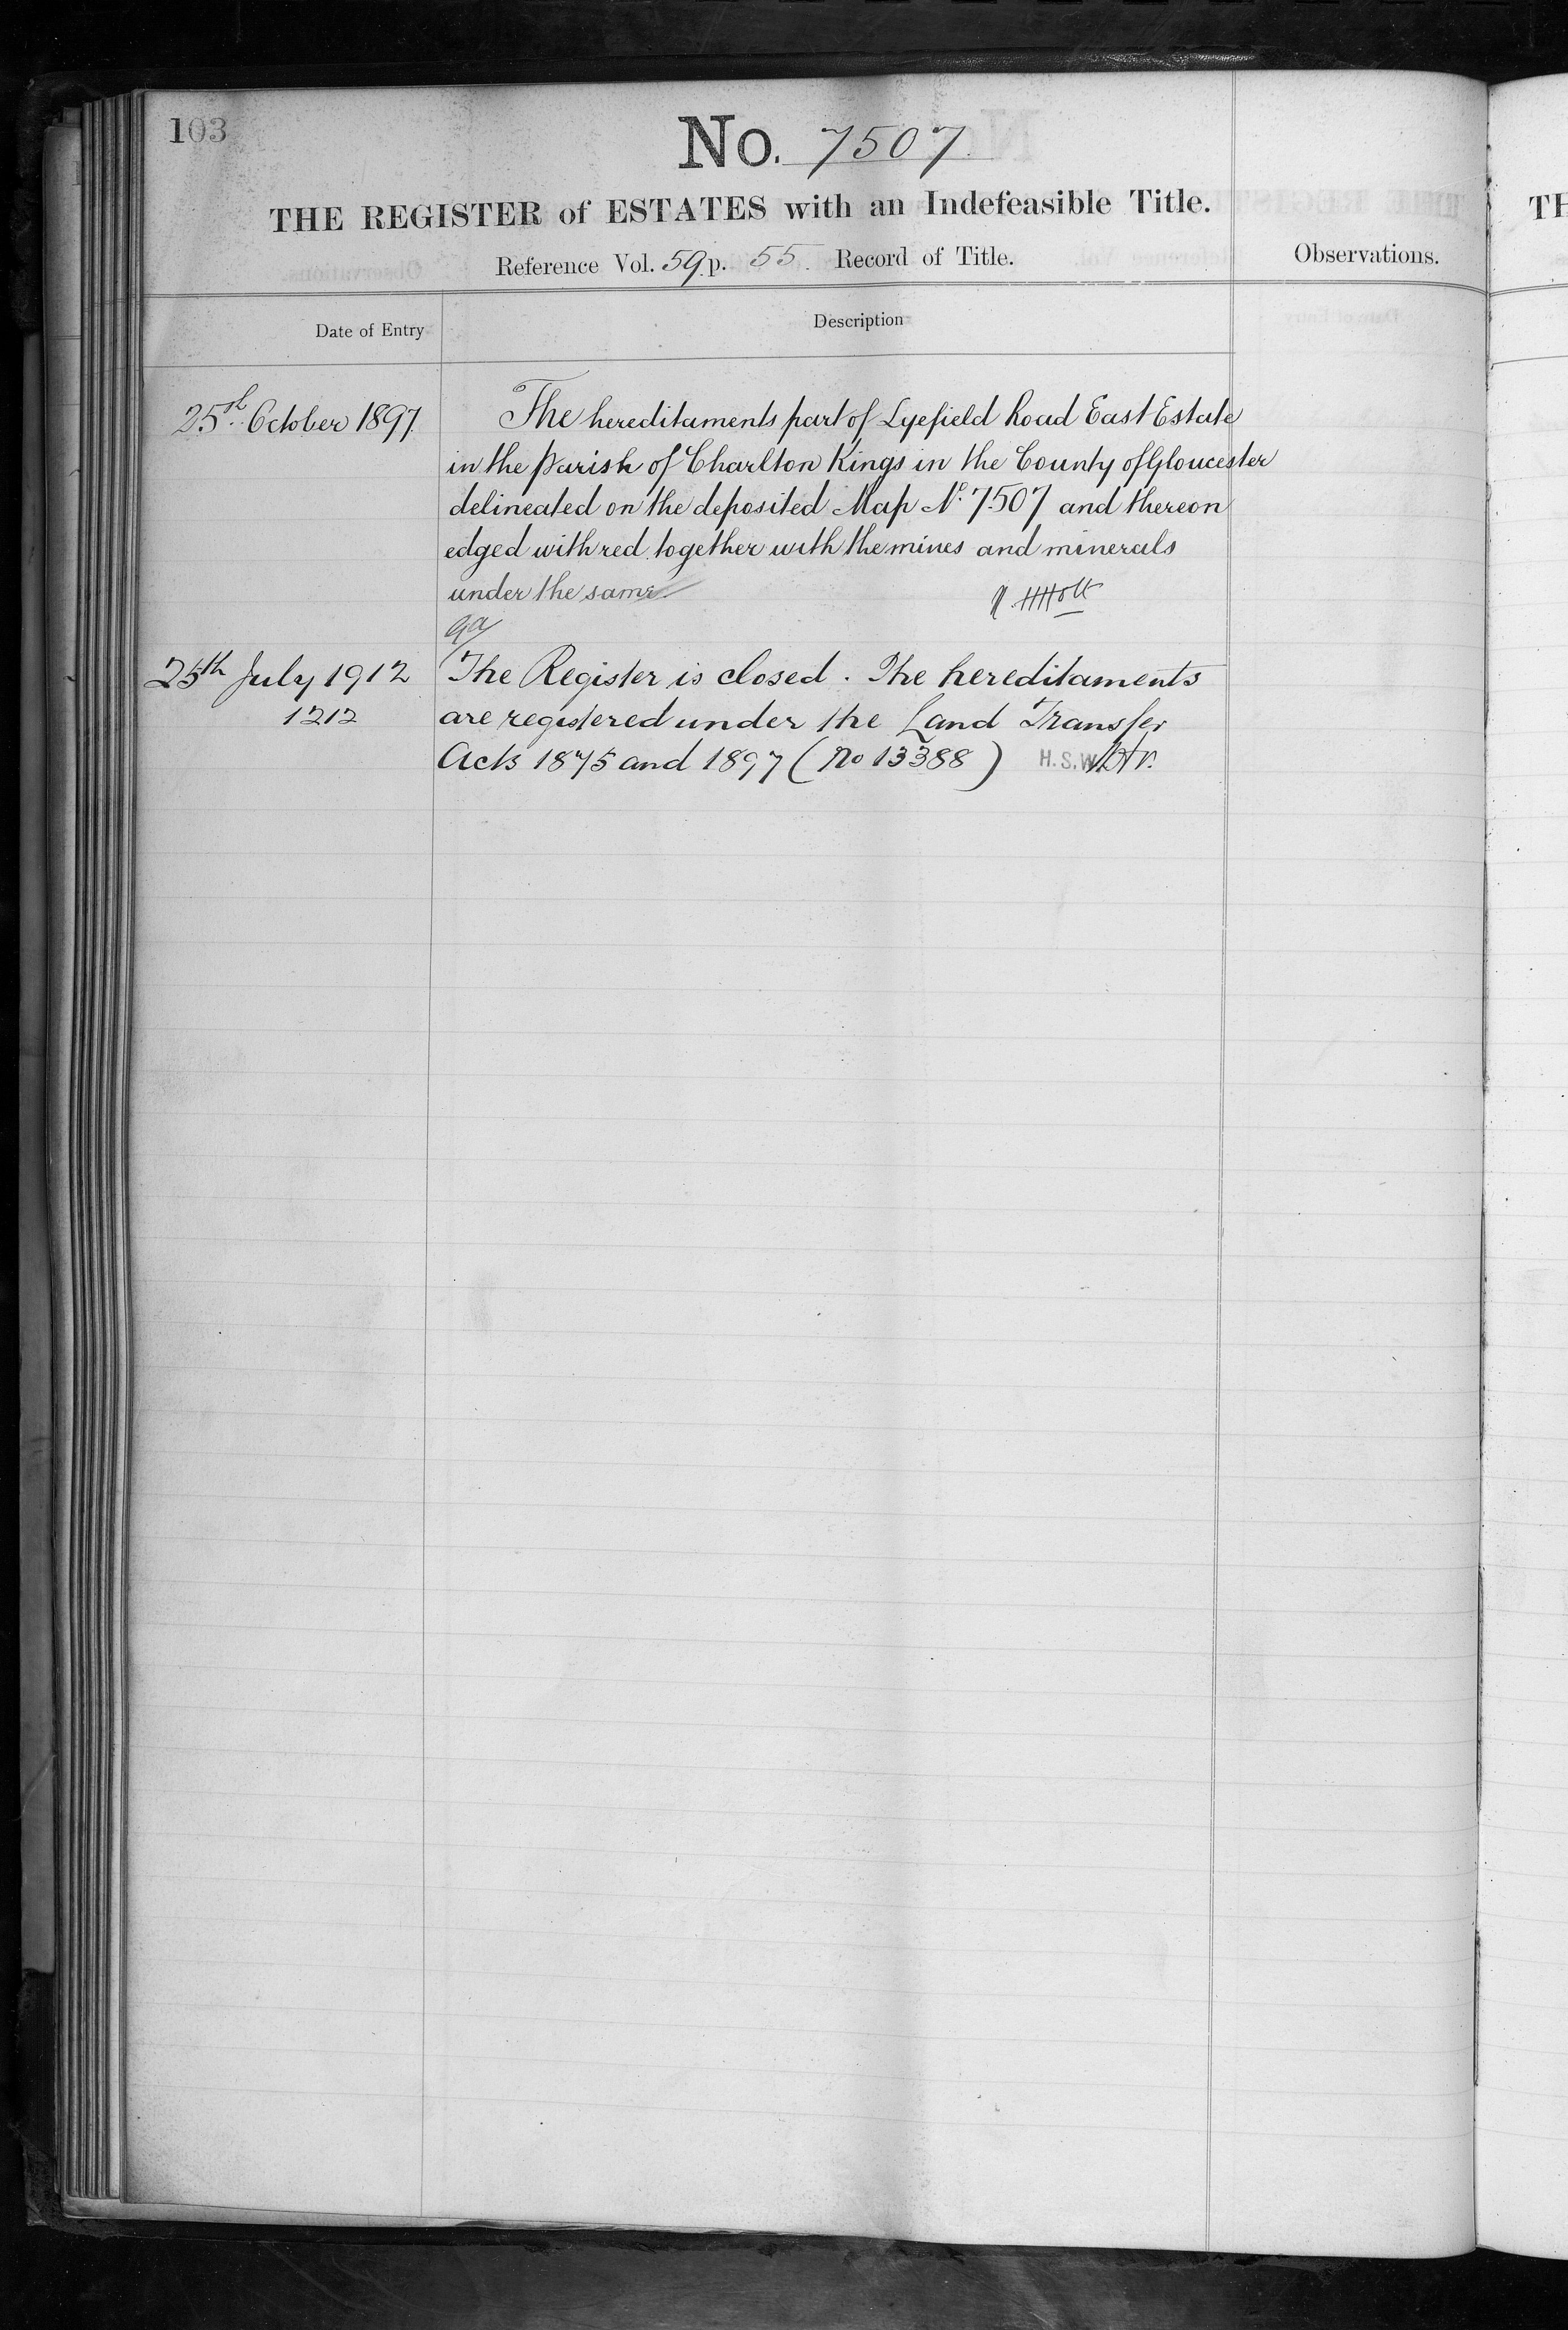 103
No. 7507.
THE REGISTER of ESTATES with an Indefeasible Title.
Reference Vol. 59 p. 55. Record of Title.
Observations.
Date of Entry
Description
25th October 1897.
The hereditaments part of Lyefield Road East Estate
in the parish of Charlton Kings in the County of Gloucester
delineated on the deposited Map No. 7507 and thereon
edged with red together with the mines and minerals
under the same
25th July 1912
1212
The Register is closed. The hereditaments
are registered under the Land Transfer
Acts 1875 and 1897 (No 13388) H.S.W.
TH